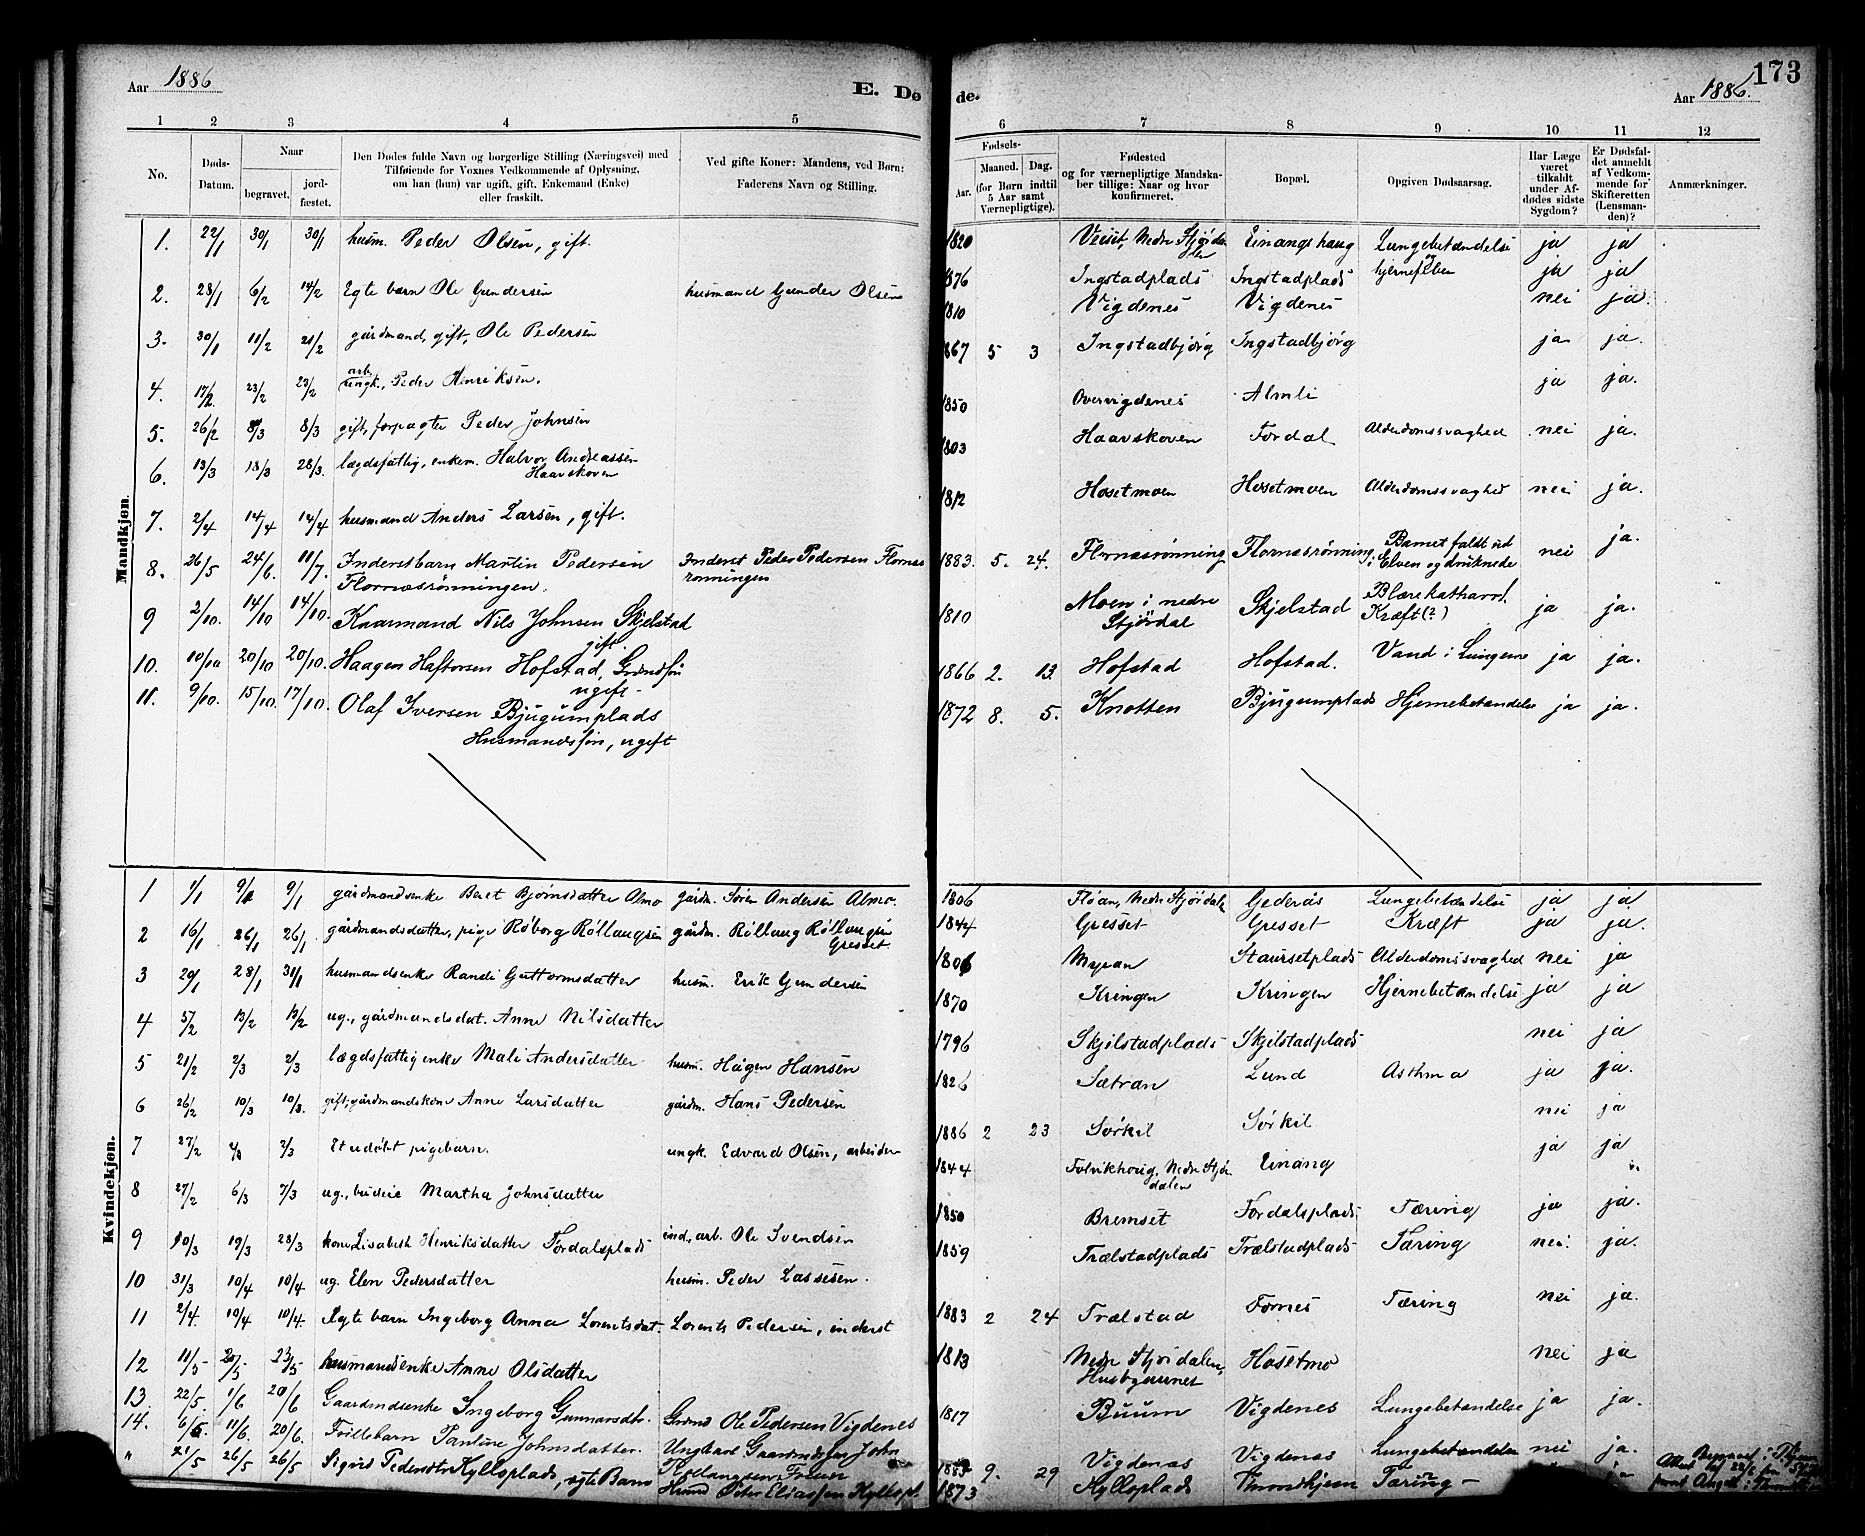 Aar 1886
E. Dø
de.
Aar 1886.
173
1 2 3 4 5
6 7 8 9 10 11 12
No.
Døds-
Datum.
Naar
begravet.
jord-
fæstet.
Den Dødes fulde Navn og borgerlige Stilling (Næringsvei) med
Tilføiende for Voxnes Vedkommende af Oplysning,
om han (hun) var ugift, gift, Enkemand (Enke)
eller fraskilt.
Ved gifte Koner: Mandens, ved Børn:
Faderens Navn og Stilling.
Fødsels-
Aar.
Maaned.
Dag.
(for Børn indtil
5 Aar samt
Værnepligtige).
Fødested
og for værnepligtige Mandska-
ber tillige: Naar og hvor
konfirmeret.
Bopæl.
Opgiven Dødsaarsag.
Har Læge
været
tilkaldt
under Af-
dødes sidste
Sygdom?
Er Dødsfal-
det anmeldt
af Vedkom-
mende for
Skifteretten
(Lensman-
den)?
Anmærkninger.
Mandkjøn.
1. 22/1 30/1 30/1 husm. Peder Olsen, gift. 1820 Nedre Stjørda Einangshaug Lungebetændelse ja ja
2. 23/1 6/2 14/2 Egte barn Ole Gundersen husmand Gunder Olsen 1876 Ingstadplads Ingstadplads hjernefeber ja ja
3. 30/1 11/2 21/2 gårdmand, gift, Ole Pedersen 1810 Vigdenes Vigdenes nei ja.
4. 17/2 23/2 23/2 arb. ungk., Peder Henriksen. 1867 5 3 Ingstadbjørg Ingstadbjørg ja ja.
5. 26/2 8/3 8/3 gift, forpagter Peder Johnsen 1850 Overvigdenes Almli ja ja.
6. 13/3 18/3 28/3. lægdsfattig, enkem. Halvor Andreassen
Haavskoven 1803 Haavskoven Fordal Alderdomssvaghed nei ja.
7. 2/4 14/4 14/4 husmand Anders Larsen, gift. 1812 Hosetmoen Hosetmoen Alderdomssvaghed nei ja.
8. 26/5 24/6. 11/7. Inderstbarn Martin Pedersen
Flornæsrønningen. Inderst Peder Pedersen Flornæs
rønningen 1883. 5. 24. Flornæsrønning Flornæsrønning Barnet faldt ud
i Elven og druknede nei ja.
9 2/10. 14/10 14/10. Kaarmand Nils Johnsen Skjelstad
gift. 1810 Moen i nedre
Stjørdal Skjelstad Blærekatharrh.
Kræft(?) ja ja.
10. 10/10 20/10 20/10. Haagen Haftorsen Hofstad, Grdmdsøn
ugift. 1866 2. 13. Hofstad Hofstad. Vand i Lungerne ja ja.
11. 9/10. 15/10 17/10. Olaf Iversen Bjugumplads
Husmandssøn, ugift 1872 8. 5. Knotten Bjugumplads Hjernebetændelse ja ja.
Kvindekjøn.
1 1/1 9/1 9/1 gårdmandsenke Beret Bjørnsdatter Almo gårdm. Søren Andersen Almo. 1806 Fløan, Nedre Stjørdal Gederås Lungebetændelse ja ja
2 16/1 26/1 26/1 gårdmandsdatter, pige Røborg Røllaugsen gårdm. Røllaug Røllaugsen
Gresset 1844 Gresset Gresset Kræft ja ja.
3 20/1 28/1 31/1 husmandsenke Randi Guttormsdatter husm. Erik Gundersen 1806 Myran Staursetplads Alderdomssvaghed nei ja
4 5/2 13/2 13/2 ug., gårdmandsdat. Anne Nilsdatter 1870 Kringen Kringen Hjernebetændelse ja ja
5 21/2 2/3 2/3 lægdsfattig enke Mali Andersdatter husm. Hågen Hansen 1796 Skjelstadplads Skjelstadplads nei ja
6 26/2 10/3 10/3. gift, gårdmandskone Anne Larsdatter gårdm. Hans Pedersen 1826 Sætran Lund Asthma ja ja.
7 27/2 2/3 2/3 Et udøbt pigebarn. ungk. Edvard Olsen, arbeider 1886 2 23 Sørkil Sørkil nei ja
8 27/2 6/3 7/3 ug., budeie Martha Johnsdatter 1844 Nedre Stjør
dalen Einang ja ja
9 10/3 19/3 28/3 kone Lisabeth Henriksdatter Fordalsplads ind., arb. Ole Svendsen 1850 Bremset Fordalsplads Tæring ja ja.
10 31/3 10/4 10/4 ug. Elen Pedersdatter husm. Peder Lassesen. 1859 Trælstadplads Trælstadplads Tæring nei. ja.
11 2/4. 10/4 10/4. Egte barn Ingeborg Anna Lorentsdat. Lorents Pedersen, inderst 1883 2 24 Trælstad Fornes Tæring nei ja.
12 11/5 20/5 23/5 husmandsenke Anne Olsdatter 1813 Nedre Stjørdalen,
Husbyaunet Hosetmo nei ja
13. 22/5. 1/6 20/6 Gaardmdsenke Ingeborg Gunnarsdtr. Grdmd Ole Pedersen Vigdenes 1817 Buum Vigdenes Lungebetændelse ja ja.
14. 6/6 11/6. 20/6. Foillebarn Pauline Johnsdatter. Ungkarl Gaardmdssøn John
1883 9. 29 Vigdenæs Vigdenæs Lungebetændelse nei ja.
" 21/5 26/5 26/5 Sigrid Pedersdtr Kylloplads, egte Barn Husmd Peter Eliassen Kyllopl. 1873 Kylloplads Throndhjem Tæring — ja